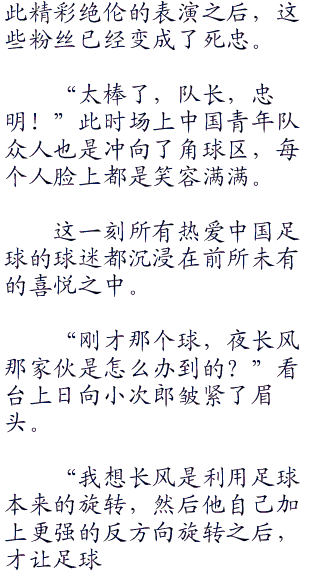 此精彩绝伦的表演之后，这
些粉丝已经变成了死忠。
“太棒了，队长，忠
明！”此时场上中国青年队
众人也是冲向了角球区，每
个人脸上都是笑容满满。
这一刻所有热爱中国足
球的球迷都沉浸在前所未有
的喜悦之中。
“刚才那个球，夜长风
那家伙是怎么办到的？”看
台上日向小次郎皱紧了眉
头。
“我想长风是利用足球
本来的旋转，然后他自己加
上更强的反方向旋转之后，
才让足球